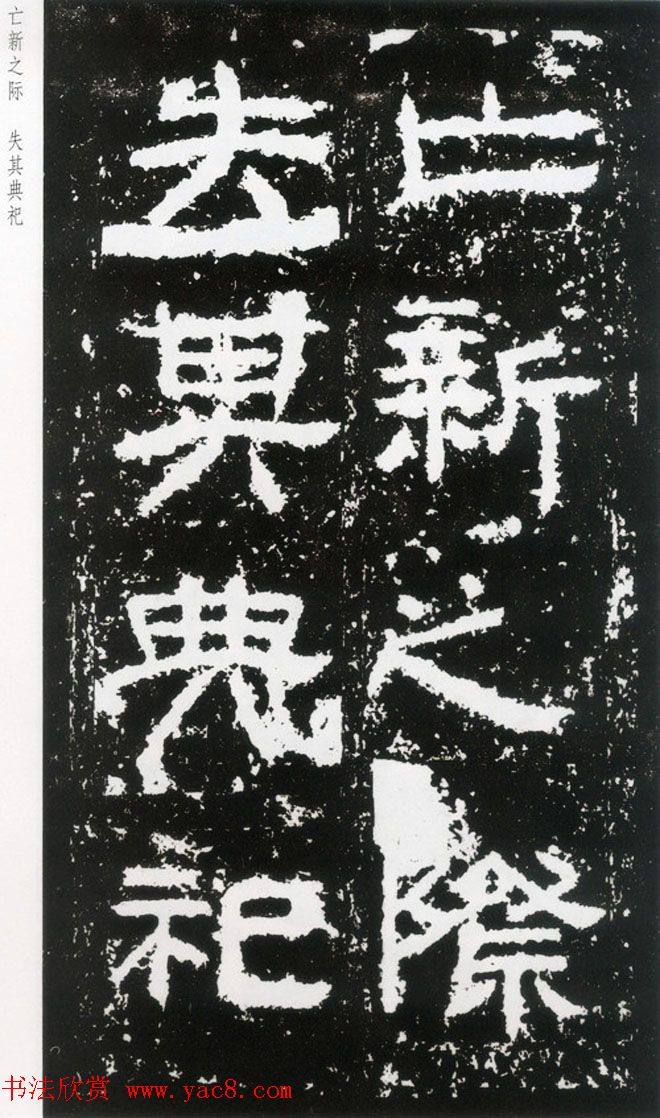 亡新之际 失其典祀
亡新之際
失其典祀
书法欣赏 www.yac8.com